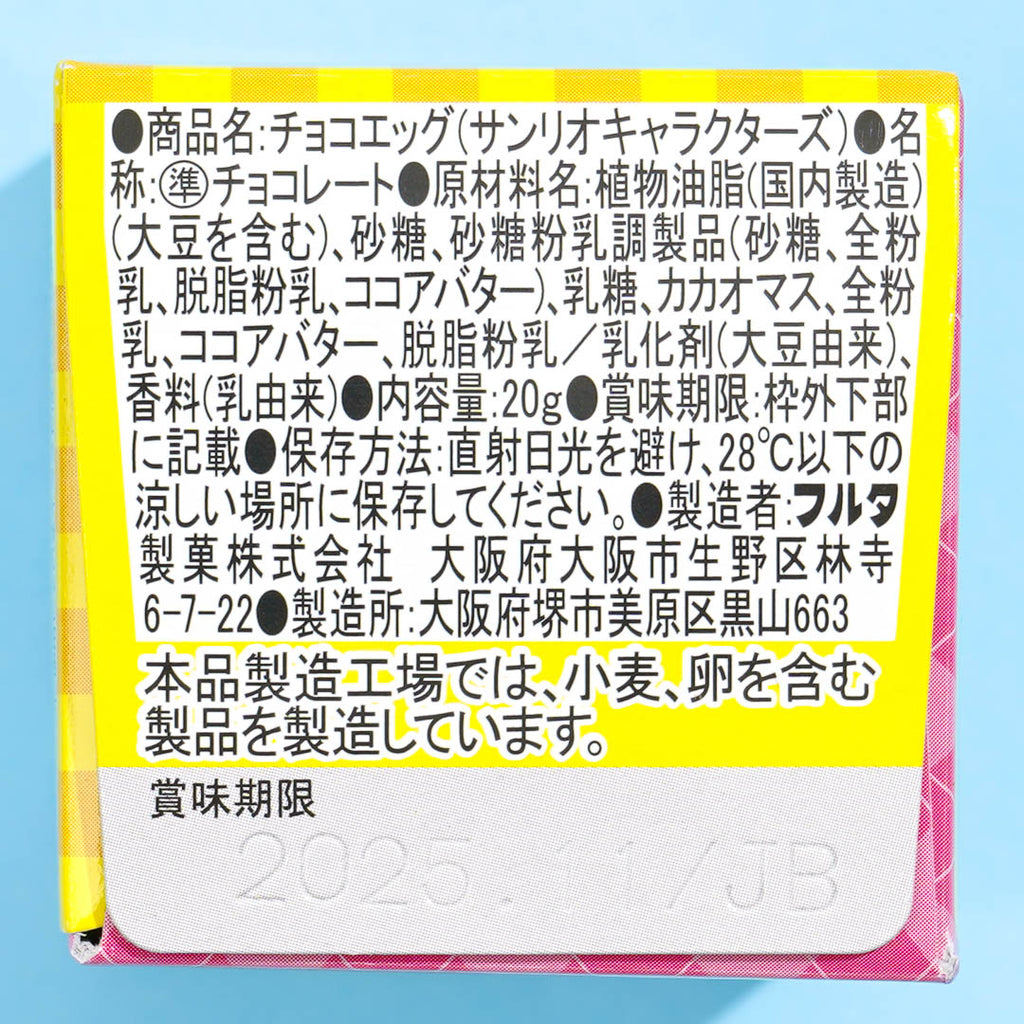 ●商品名:チョコエッグ(サンリオキャラクターズ)●名
称:㊟準チョコレート●原材料名:植物油脂(国内製造)
(大豆を含む)、砂糖、砂糖粉乳調製品(砂糖、全粉
乳、脱脂粉乳、ココアバター)、乳糖、カカオマス、全粉
乳、ココアバター、脱脂粉乳/乳化剤(大豆由来)、
香料(乳由来)●内容量:20g●賞味期限:枠外下部
に記載●保存方法:直射日光を避け、28℃以下の
涼しい場所に保存してください。●製造者:フルタ
製菓株式会社 大阪府大阪市生野区林寺
6-7-22●製造所:大阪府堺市美原区黒山663
本品製造工場では、小麦、卵を含む
製品を製造しています。
賞味期限
2025.11/JB